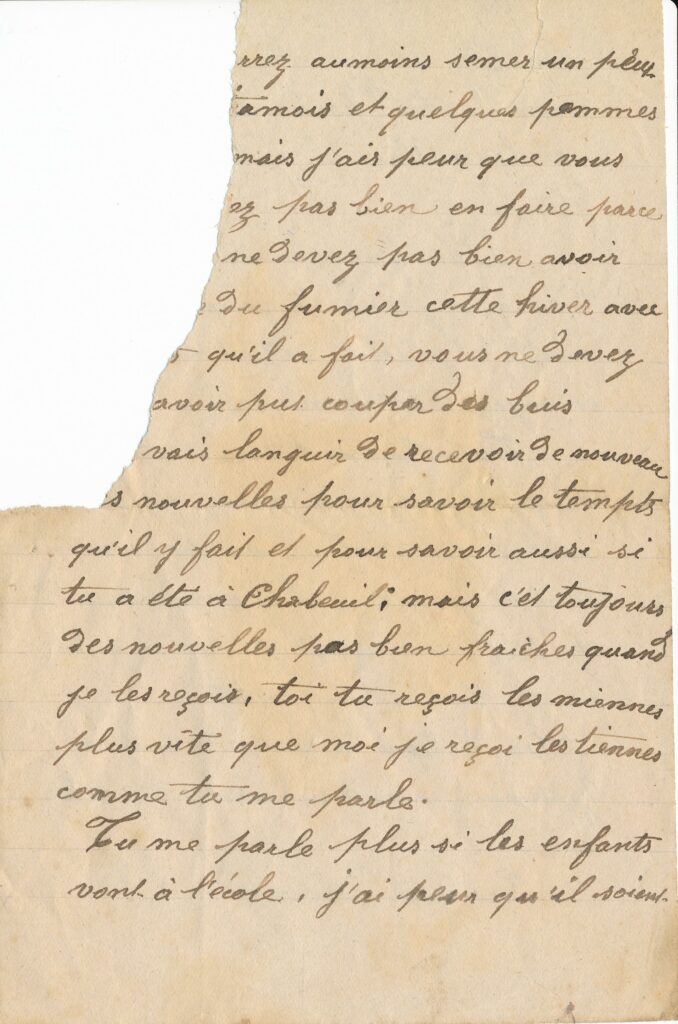 rrez aumoins semer un peux
tamois et quelques pommes
mais j'ais peur que vous
ez pas bien en faire parce
ne devez pas bien avoir
e du fumier cette hiver avec
qu'il a fait, vous ne devez
avoir put couper des buis
vais languir de recevoir de nouveau
s nouvelles pour savoir le tempts
qu'il y fait et pour savoir aussi si
tu a été à Chabeuil; mais c'et toujours
des nouvelles pas bien fraiches quand
je les reçois, toi tu reçois les miennes
plus vite que moi je reçoi les tiennes
comme tu me parle.
Tu me parle plus si les enfants
vont à l'école, j'ai peur qu'il soient